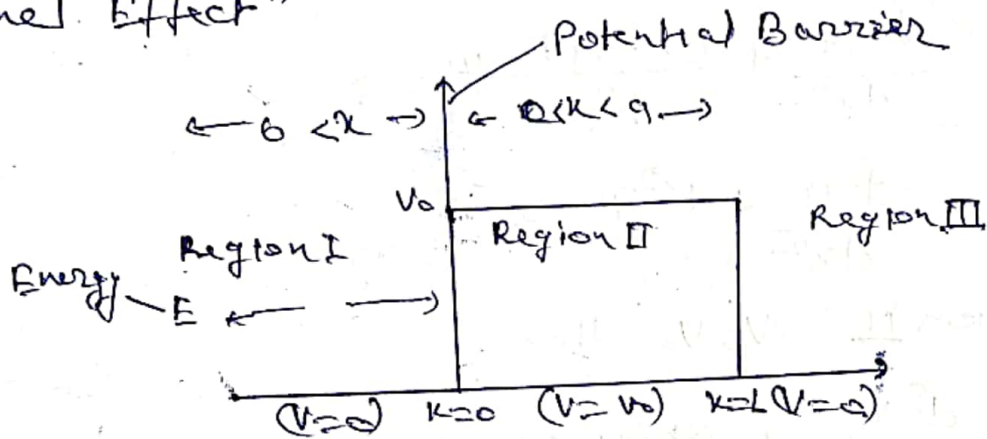 nel Effect"
Potential Barrier
6 < x
0<x<a
V₀
Region I
Region II
Region III
Energy
E
(V=0) x=0 (V=V₀) x=L (V=0)